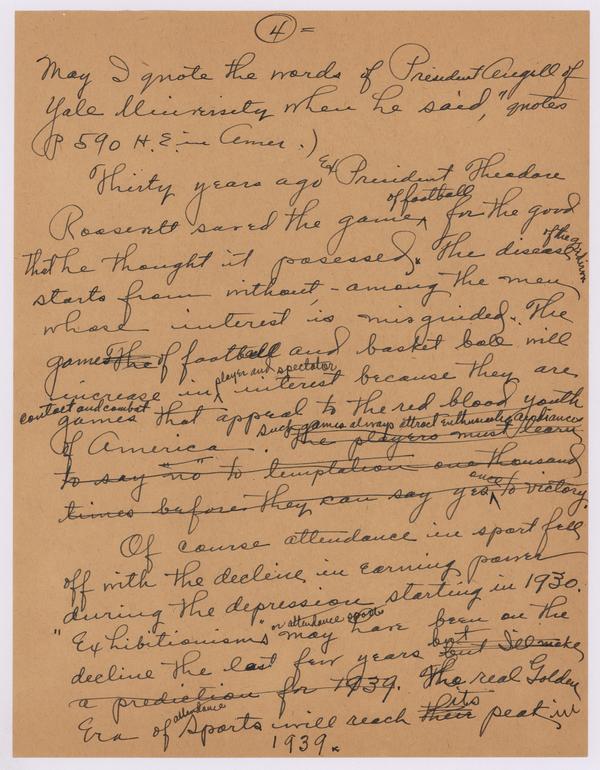 4 =
May I quote the words of President Angell of
Yale University when he said, "quotes
(P 590 H. E. in Amer.)
Thirty years ago Ex President Theodore
of football
Roosevelt saved the game for the good
that he thought it posessed. The disease of the gridiron
starts from without, - among the men
whose interest is misguided. The
games The of football and basket ball will
player and spectator
increase in interest because they are
contact and combat
games that appeal to the red blood youth
such games always attract enthusiastic audiences
of America. The players must learn
to say "no" to temptation one thousand
times before they can say yes once to victory.
Of course attendance in sport fell
off with the decline in earning power
during the depression starting in 1930.
or attendance sports
"Exhibitionisms" may have been on the
decline the last few years but but I'll make
a prediction for 1939. The real Golden
attendance
Era of Sports will reach their its peak in
1939.